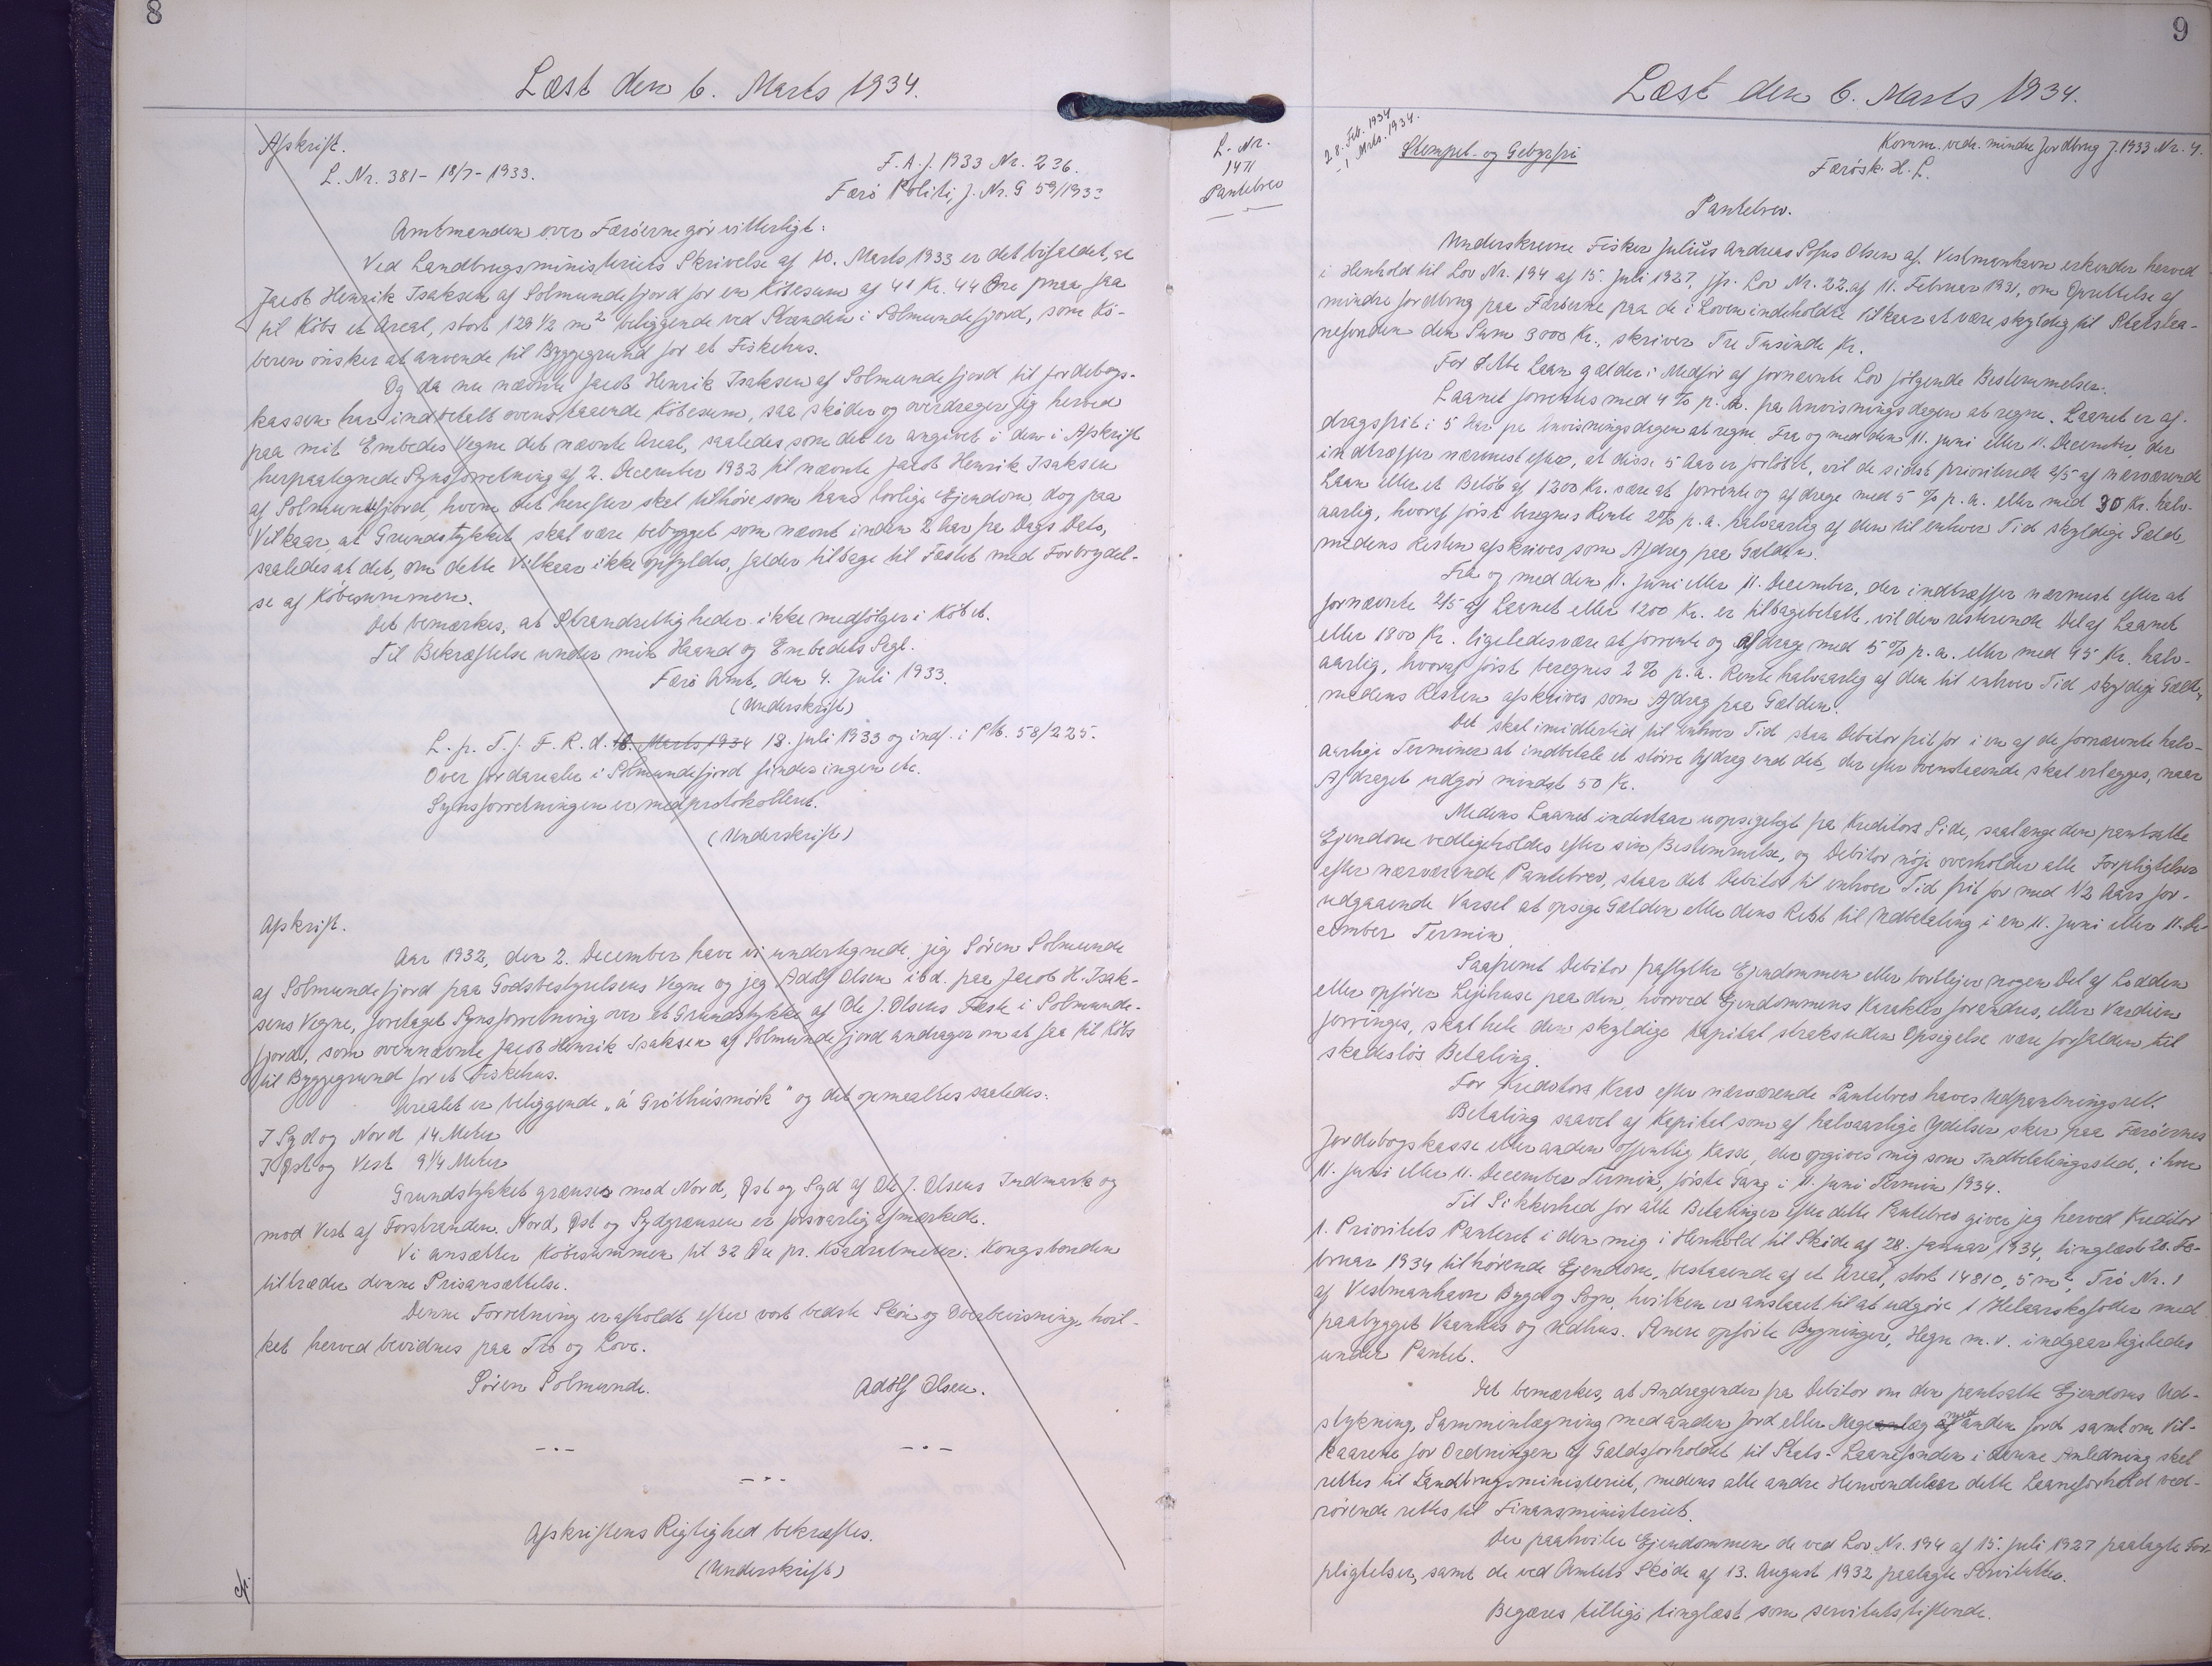 8
Læst den 6. Marts 1934.
Afskrift.
L. Nr. 381 - 18/7 - 1933.
F. A. J. 1933 Nr. 236.
Færø Politi J. Nr. G 59/1933
Amtmanden over Færøerne gør vitterligt:
Ved Landbrugsministeriets Skrivelse af 10. Marts 1933 er det bifaldet, at
Jacob Henrik Isaksen af Solmundefjord for en Købesum af 41 Kr. 44 Øre maa faa
til Købs et Areal, stort 129 1/2 m² beliggende ved Stranden i Solmundefjord, som Kø-
beren ønsker at anvende til Byggegrund for et Fiskehus.
Og da nu nævnte Jacob Henrik Isaksen af Solmundefjord til Jordebogs-
kassen har indbetalt ovenstaaende Købesum, saa skøder og overdrager jeg herved
paa mit Embedes Vegne det nævnte Areal, saaledes, som det er angivet i den i Afskrift
herpaategnede Synsforretning af 2. December 1932 til nævnte Jacob Henrik Isaksen
af Solmundefjord, hvem det herefter skal tilhøre som hans lovlige Ejendom, dog paa
Vilkaar, at Grundstykket skal være bebygget som nævnt inden 2 Aar fra Dags Dato,
saaledes at det, om dette Vilkaar ikke opfyldes, falder tilbage til Fæstet med Forbrydel-
se af Købesummen.
Det bemærkes, at Strandrettigheder ikke medfølger i Købet.
Til Bekræftelse under min Haand og Embedets Segl.
Færø Amt, den 4. Juli 1933.
(Underskrift)
L. p. T. f. F. R. d. 18. Marts 1934 18. Juli 1933 og indf. i Ptb. 58/225.
Over Jordarealer i Solmundefjord findes ingen etc.
Synsforretningen er medprotokolleret.
(Underskrift)
Afskrift.
Aar 1932, den 2. December have vi undertegnede, jeg Sören Solmunde
af Solmundefjord paa Godsbestyrelsens Vegne og jeg Adolf Olsen ibd. paa Jacob H. Isak-
sens Vegne, foretaget Synsforretning over et Grundstykke af Ole J. Olsens Fæste i Solmunde-
fjord, som ovennævnte Jacob Henrik Isaksen af Solmundefjord andrager om at faa til Købs
til Byggegrund for et Fiskehus.
Arealet er beliggende „á Gróthúsmørk" og det opmaaltes saaledes:
I Syd og Nord 14 Meter
I Øst og Vest 9 1/4 Meter
Grundstykket grænser mod Nord, Øst og Syd af Ole J. Olsens Indmark og
mod Vest af Forstranden. Nord, Øst og Sydgrænsen er forsvarlig afmærkede.
Vi ansætter Købesummen til 32 Øre pr. Kvadratmeter. Kongsbonden
tiltræder denne Prisansættelse.
Denne Forretning er afholdt efter vort bedste Skøn og Overbevisning, hvil-
ket herved bevidnes paa Tro og Love.
Sören Solmunde. Adolf Olsen.
Afskriftens Rigtighed bekræftes.
(Underskrift)
9
Læst den 6. Marts 1934.
L. Nr.
1471
Pantebrev
28. Feb. 1934
- 1 Mrts. 1934.
Stempel- og Gebyrfri
Komm. vedr. mindre Jordbrug J. 1933 Nr. 4.
Færösk. H. L.
Pantebrev.
Underskrevne Fisker Julius Andreas Sofus Olsen af Vestmanhavn erkender herved
i Henhold til Lov Nr. 194 af 15. Juli 1927, jfr. Lov Nr. 22 af 11. Februar 1931, om Oprettelse af
mindre Jordbrug paa Færøerne paa de i Loven indeholdte Vilkaar at være skyldig til Statslaa-
nefonden den Sum 3000 Kr., skriver Tre Tusinde Kr.
For dette Laan gælder i Medfør af fornævnte Lov følgende Bestemmelser.
Laanet forrentes med 4 % p. A. fra Anvisningsdagen at regne. Laanet er af-
dragsfrit i 5 Aar fra Anvisningsdagen at regne. Fra og med den 11. Juni eller 11. December, der
indtræffer nærmest efter, at disse 5 Aar er forløbet, vil de sidst prioriterede 2/5 af nærværende
Laan eller et Beløb af 1200 Kr. være at forrente og afdrage med 5 % p. a. eller med 30 Kr. halv-
aarlig, hvoraf først beregnes Rente 2% p. a. halvaarlig af den til enhver Tid skyldige Gæld,
medens Resten afskrives som Afdrag paa Gælden.
Fra og med den 11. Juni eller 11. December, der indtræffer nærmest efter at
fornævnte 2/5 af Laanet eller 1200 Kr. er tilbagebetalt, vil den resterende Del af Laanet
eller 1800 Kr. ligeledes være at forrente og afdrage med 5 % p. a. eller med 45 Kr. halv-
aarlig, hvoraf først beregnes 2 % p. a. Rente halvaarlig af den til enhver Tid skyldige Gæld,
medens Resten afskrives som Afdrag paa Gælden.
Det skal imidlertid til enhver Tid staa Debitor frit for i en af de fornævnte halv-
aarlige Terminer at indbetale et større Afdrag end det, der efter ovenstaaende skal erlægges, naar
Afdraget udgør mindst 50 Kr.
Medens Laanet indestaar uopsigeligt fra Kreditors Side, saalænge den pantsatte
Ejendom vedligeholdes efter sin Bestemmelse, og Debitor nøje overholder alle Forpligtelser
efter nærværende Pantebrev, staar det Debitor til enhver Tid frit for med 1/2 Aars for-
udgaaende Varsel at opsige Gælden eller dens Rest til Udbetaling i en 11. Juni eller 11. De-
cember Termin.
Saafremt Debitor fraflytter Ejendommen eller bortlejer nogen Del af Lodden
eller opfører Lejehuse paa den, hvorved Ejendommens Karakter forandres, eller Værdien
forringes, skal hele den skyldige Kapital straks uden Opsigelse være forfalden til
skadesløs Betaling.
For Kreditors Krav efter nærværende Pantebrev haves Udpantningsret.
Betaling saavel af Kapital som af halvaarlige Ydelser sker paa Færøernes
Jordebogskasse eller anden offentlig Kasse, der opgives mig som Indbetalingssted, i hver
11. Juni eller 11. December Termin, første Gang i 11. Juni Termin 1934.
Til Sikkerhed for alle Betalinger efter dette Pantebrev giver jeg herved Kreditor
1. Prioritets Panteret i den mig i Henhold til Skøde af 28. Januar 1934, tinglæst 20. Fe-
bruar 1934 tilhørende Ejendom, bestaaende af et Areal, stort 14810,5 m², Trö Nr. 1
af Vestmanhavn Bygd og Sogn, hvilken er anslaaet til at udgøre 1 Helaarskofoder med
paabygget Vaanhus og Udhus. Senere opførte Bygninger, Hegn m. v. indgaar ligeledes
under Pantet.
Det bemærkes, at Andragender fra Debitor om den pantsatte Ejendoms Ud-
stykning, Sammenlægning med anden Jord eller Mageanlæg af med anden Jord samt om Vil-
kaarene for Ordningen af Gældsforholdet til Stats-Laanefonden i denne Anledning skal
rettes til Landbrugsministeriet, medens alle andre Henvendelser dette Laaneforhold ved-
rørende rettes til Finansministeriet.
Der paahviler Ejendommen de ved Lov Nr. 194 af 15. Juli 1927 paalagte For-
pligtelser, samt de ved Amtets Skøde af 13. August 1932 paalagte Servitutter.
Begæres tillige tinglæst som servitutstiftende.